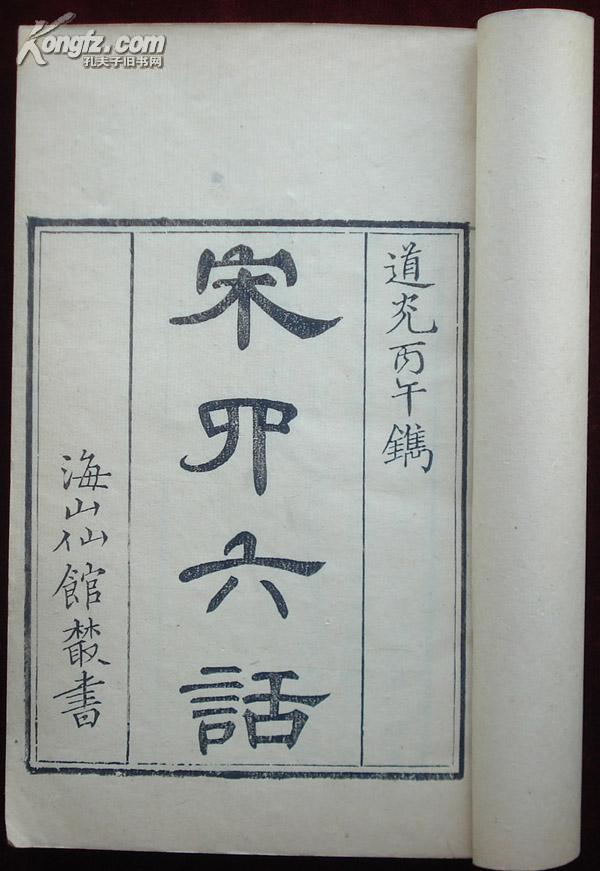 Kongfz.com
孔夫子旧书网
道光丙午鐫
宋四六話
海山仙館叢書